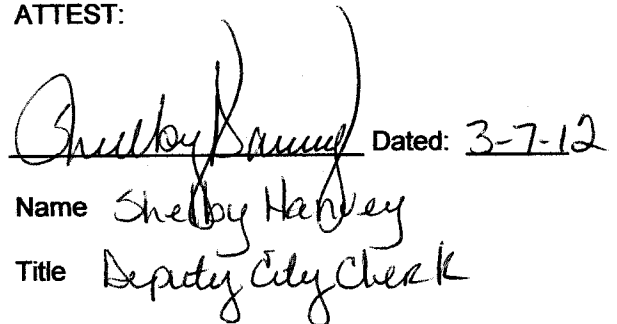 ATTEST:
Shelby Harvey Dated: 3-7-12
Name Shelby Harvey
Title Deputy City Clerk